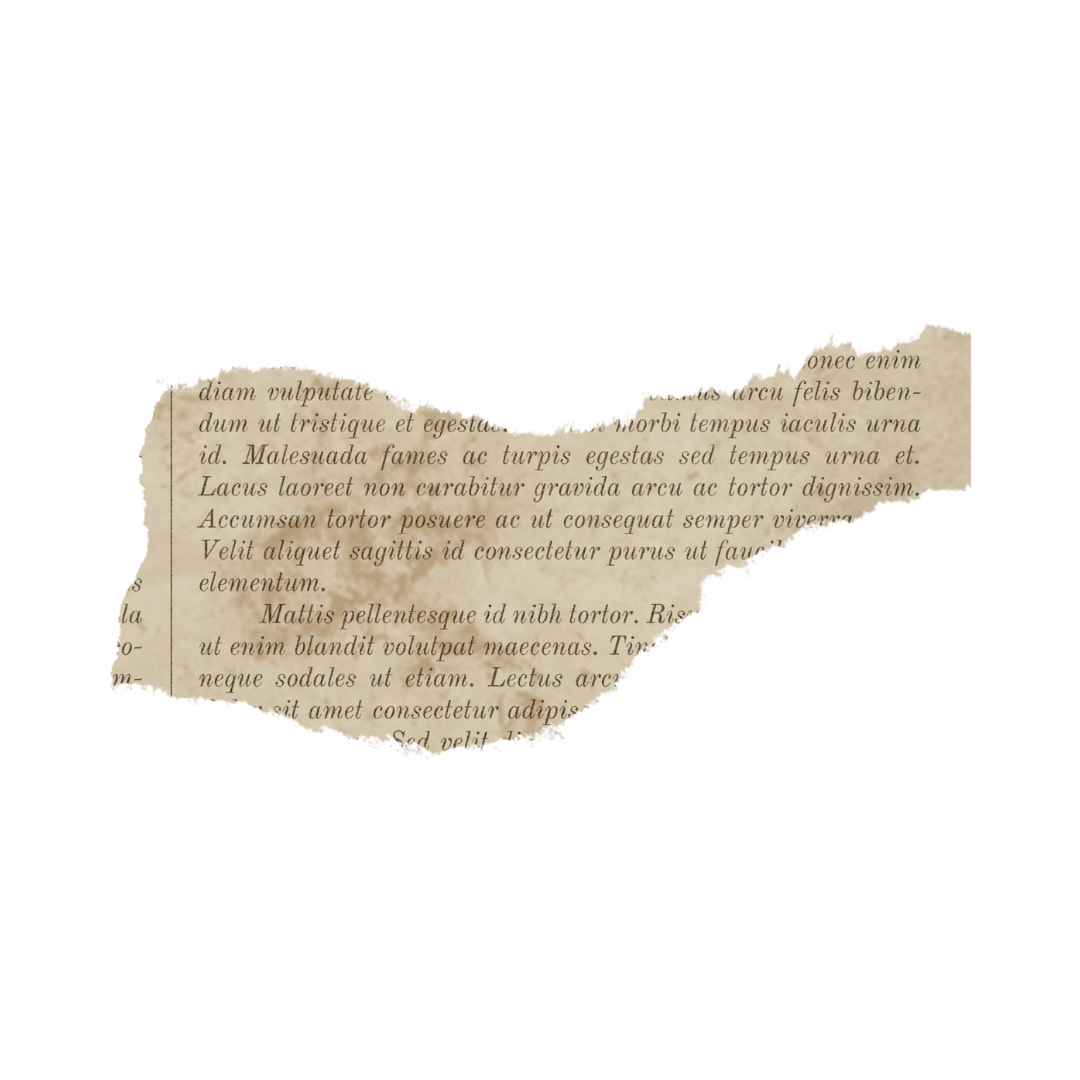 onec enim
diam vulputate arcu felis biben-
dum ut tristique et egestas. morbi tempus iaculis urna
id. Malesuada fames ac turpis egestas sed tempus urna et.
Lacus laoreet non curabitur gravida arcu ac tortor dignissim.
Accumsan tortor posuere ac ut consequat semper viverra
Velit aliquet sagittis id consectetur purus ut
s elementum.
la Mattis pellentesque id nibh tortor. Ris
o- ut enim blandit volutpat maecenas. Tin
m- neque sodales ut etiam. Lectus arcu
sit amet consectetur adipis
Sed velit